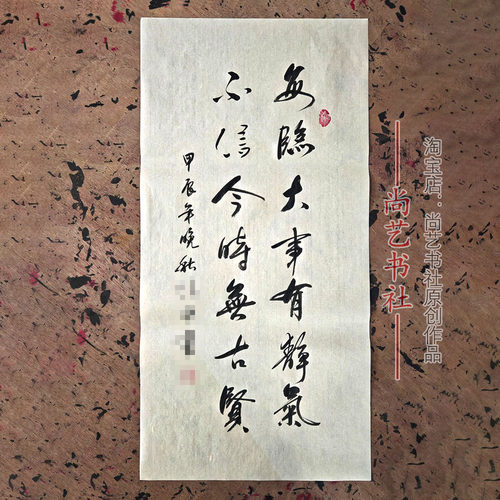 每臨大事有靜氣
不信今時無古賢
甲辰年晚秋
尚艺书社
淘宝店：尚艺书社原创作品